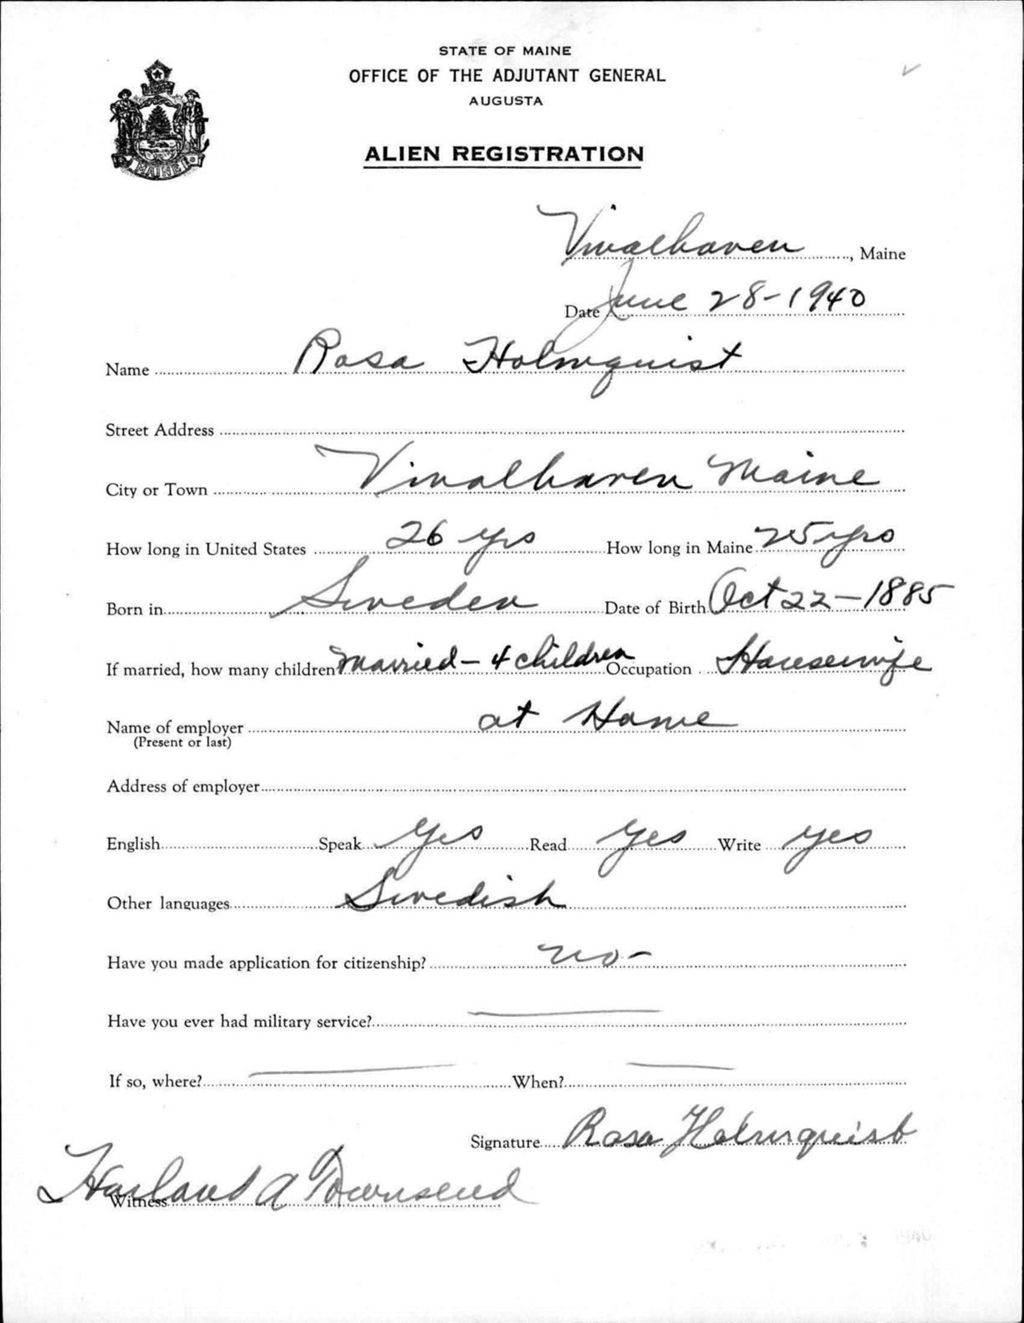 STATE OF MAINE
OFFICE OF THE ADJUTANT GENERAL
AUGUSTA
ALIEN REGISTRATION
MAINE
Vinalhaven, Maine
Date June 28-1940
Name Rosa Holmquist
Street Address
City or Town Vinalhaven Maine
How long in United States 26 yrs How long in Maine 25 yrs
Born in Sweden Date of Birth Oct 22-1885
If married, how many children Married-4 children Occupation Housewife
Name of employer at Home
(Present or last)
Address of employer
English Speak Yes Read Yes Write yes
Other languages Swedish
Have you made application for citizenship? no-
Have you ever had military service?
If so, where? When?
Signature Rosa Holmquist
Witness Harland A Townsend